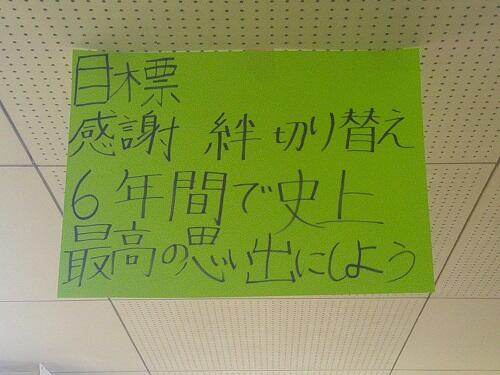 目標
感謝 絆 切り替え
6年間で史上
最高の思い出にしよう